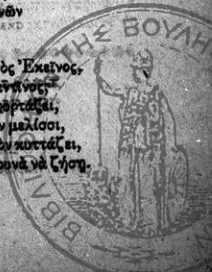 νῶν
ὸς Ἐκεῖνος,
χορτάζει,
ν μελίσσι,
ὸν κυττάζει,
ουνὰ νὰ ζήσῃ.
ΤΗΣ ΒΟΥΛΗ
ΒΙΒΛΙ